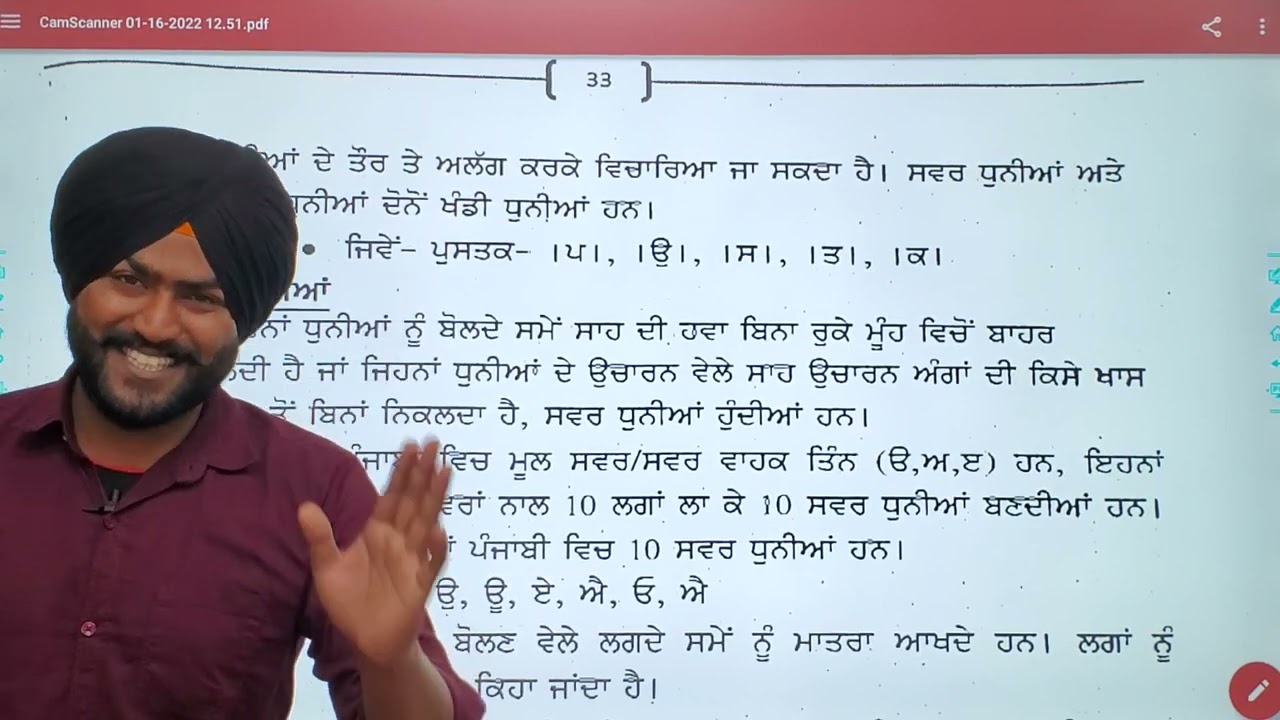 CamScanner 01-16-2022 12.51.pdf
33
ਦੇ ਤੌਰ ਤੇ ਅਲੱਗ ਕਰਕੇ ਵਿਚਾਰਿਆ ਜਾ ਸਕਦਾ ਹੈ। ਸਵਰ ਧੁਨੀਆਂ ਅਤੇ
ਦੋਨੋਂ ਖੰਡੀ ਧੁਨੀਆਂ ਹਨ।
• ਜਿਵੇਂ– ਪੁਸਤਕ– ।ਪ।, ।ਉ।, ।ਸ।, ।ਤ।, ।ਕ।
ਧੁਨੀਆਂ ਨੂੰ ਬੋਲਦੇ ਸਮੇਂ ਸਾਹ ਦੀ ਹਵਾ ਬਿਨਾ ਰੁਕੇ ਮੂੰਹ ਵਿਚੋਂ ਬਾਹਰ
ਹੈ ਜਾਂ ਜਿਹਨਾਂ ਧੁਨੀਆਂ ਦੇ ਉਚਾਰਨ ਵੇਲੇ ਸਾਹ ਉਚਾਰਨ ਅੰਗਾਂ ਦੀ ਕਿਸੇ ਖਾਸ
ਤੋਂ ਬਿਨਾਂ ਨਿਕਲਦਾ ਹੈ, ਸਵਰ ਧੁਨੀਆਂ ਹੁੰਦੀਆਂ ਹਨ।
ਵਿਚ ਮੂਲ ਸਵਰ/ਸਵਰ ਵਾਹਕ ਤਿੰਨ (ੳ,ਅ,ੲ) ਹਨ, ਇਹਨਾਂ
ਨਾਲ 10 ਲਗਾਂ ਲਾ ਕੇ 10 ਸਵਰ ਧੁਨੀਆਂ ਬਣਦੀਆਂ ਹਨ।
ਪੰਜਾਬੀ ਵਿਚ 10 ਸਵਰ ਧੁਨੀਆਂ ਹਨ।
ਉ, ਊ, ਏ, ਐ, ਓ, ਐ
ਬੋਲਣ ਵੇਲੇ ਲਗਦੇ ਸਮੇਂ ਨੂੰ ਮਾਤਰਾ ਆਖਦੇ ਹਨ। ਲਗਾਂ ਨੂੰ
ਕਿਹਾ ਜਾਂਦਾ ਹੈ।